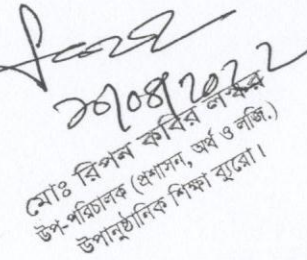 ২০/০৪/২০২২
মোঃ রিপন কবির লস্কর
উপ-পরিচালক (প্রশাসন, অর্থ ও লজি.)
উপানুষ্ঠানিক শিক্ষা ব্যুরো।